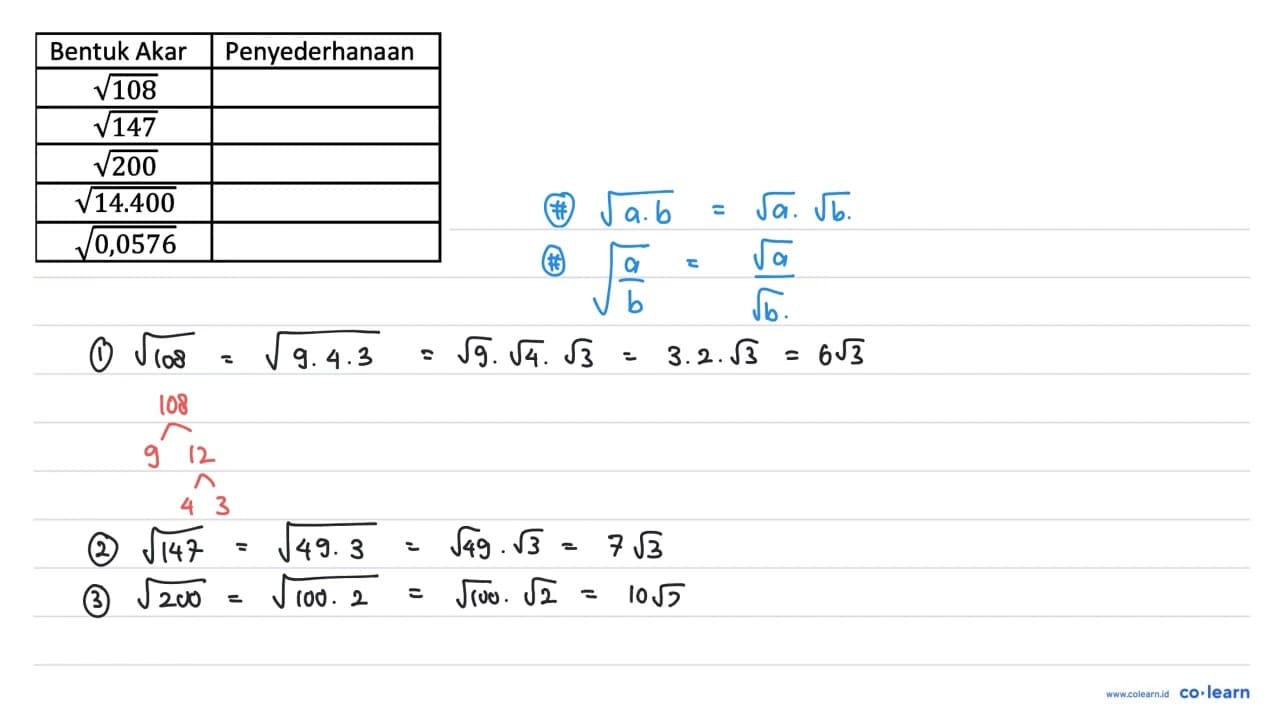 Bentuk Akar Penyederhanaan
√108
√147
√200
√14.400
√0,0576
# √a.b = √a. √b.
# √a/b = √a/√b.
① √108 = √9.4.3 = √9. √4. √3 = 3.2.√3 = 6√3
108
9 12
4 3
② √147 = √49.3 = √49 . √3 = 7√3
③ √200 = √100.2 = √100. √2 = 10√2
www.colearn.id co·learn